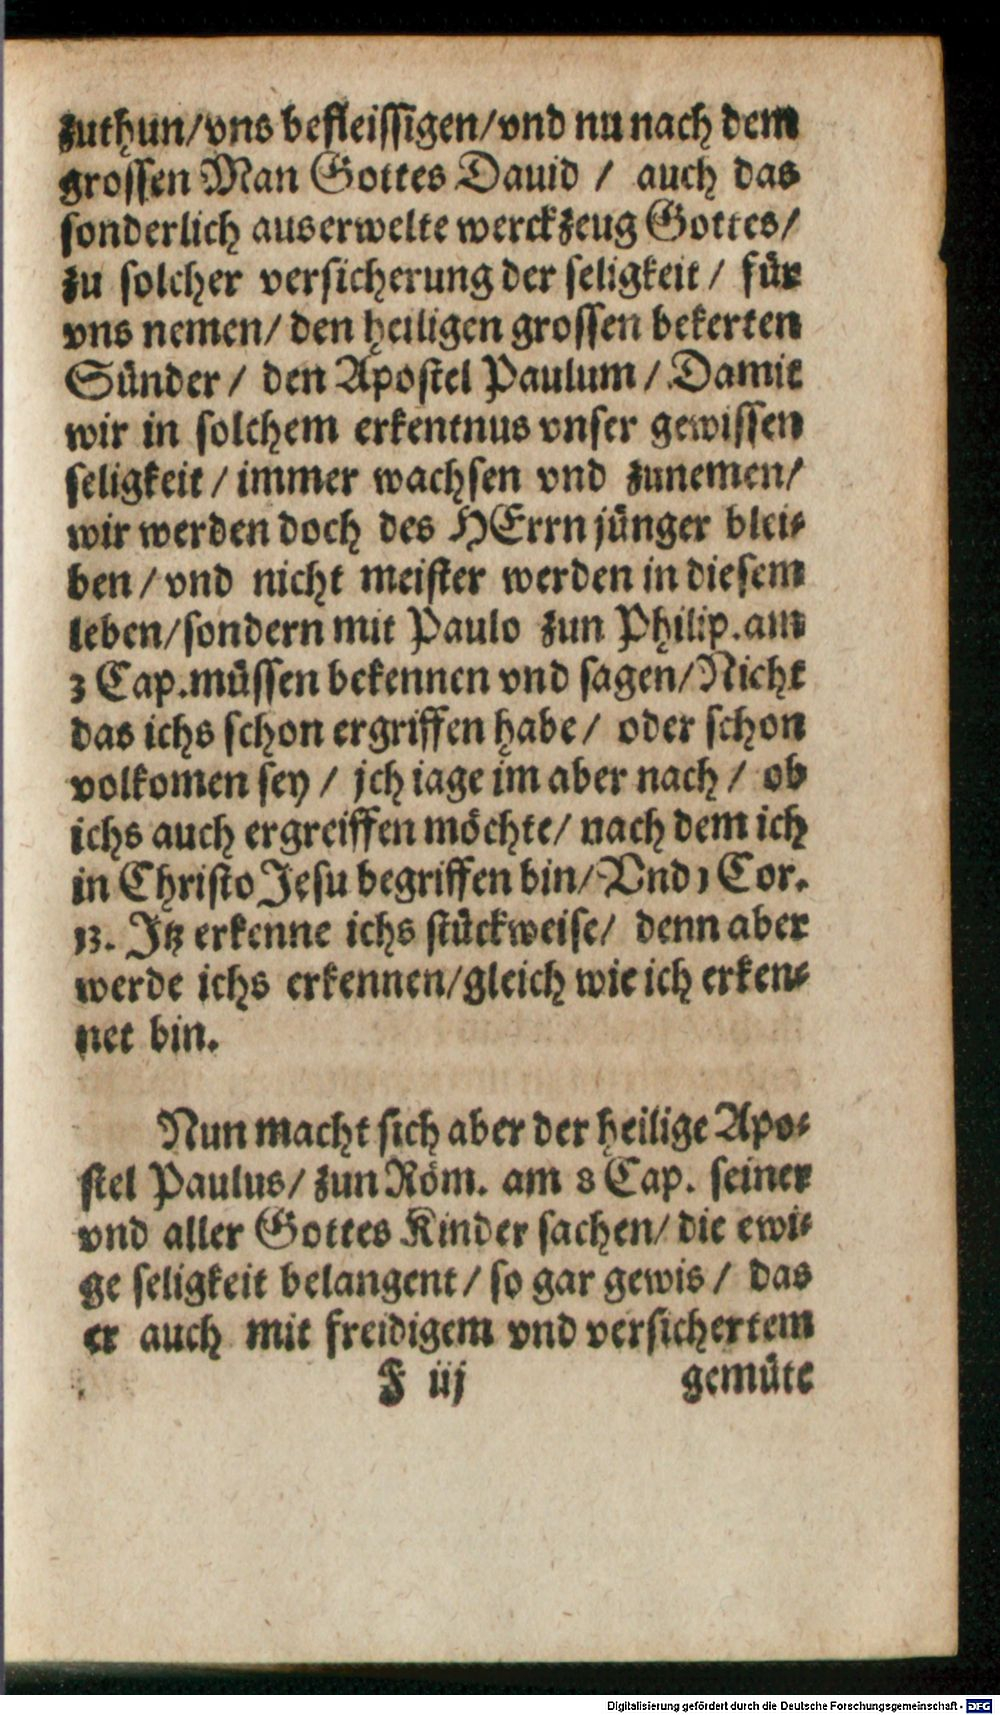 zuthun/vns befleissigen/vnd nu nach dem
grossen Man Gottes Dauid / auch das
sonderlich auserwelte werckzeug Gottes/
zu solcher versicherung der seligkeit / für
vns nemen/ den heiligen grossen bekerten
Sünder / den Apostel Paulum / Damit
wir in solchem erkentnus vnser gewissen
seligkeit / immer wachsen vnd zunemen/
wir werden doch des HErrn jünger blei-
ben / vnd nicht meister werden in diesem
leben/sondern mit Paulo zun Philip.am
3 Cap.müssen bekennen vnd sagen/Nicht
das ichs schon ergriffen habe / oder schon
volkomen sey / jch iage im aber nach / ob
ichs auch ergreiffen möchte/ nach dem ich
in Christo Jesu begriffen bin/Vnd 1 Cor.
13. Jtz erkenne ichs stückweise/ denn aber
werde ichs erkennen/gleich wie ich erken-
net bin.
Nun macht sich aber der heilige Apo-
stel Paulus/ zun Röm. am 8 Cap. seiner
vnd aller Gottes Kinder sachen/ die ewi-
ge seligkeit belangent / so gar gewis / das
er auch mit freidigem vnd versichertem
F iij gemüte
Digitalisierung gefördert durch die Deutsche Forschungsgemeinschaft - DFG